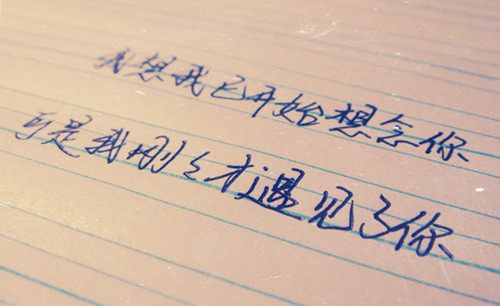 我想我已开始想念你
可是我刚々才遇见了你